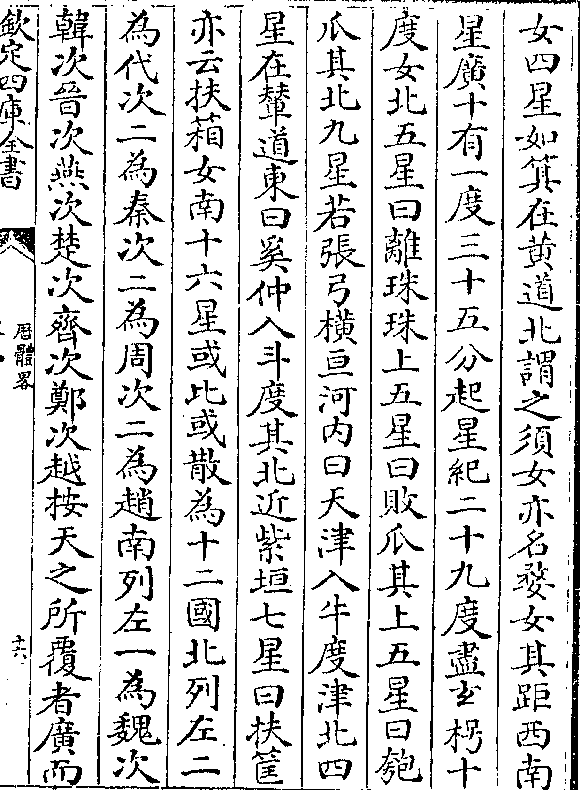 女四星如箕在黄道北謂之須女亦名婺女其距西南
星廣十有一度三十五分起星紀二十九度盡玄枵十
度女北五星曰離珠珠上五星曰敗瓜其上五星曰匏
瓜其北九星若張弓橫亘河内曰天津入牛度津北四
星在輦道東曰奚仲入斗度其北近紫垣七星曰扶筐
亦云扶箱女南十六星或比或散為十二國北列左二
為代次二為秦次二為周次二為趙南列左一為魏次
韓次晉次燕次楚次齊次鄭次越按天之所覆者廣而
欽定四庫全書
厯體畧